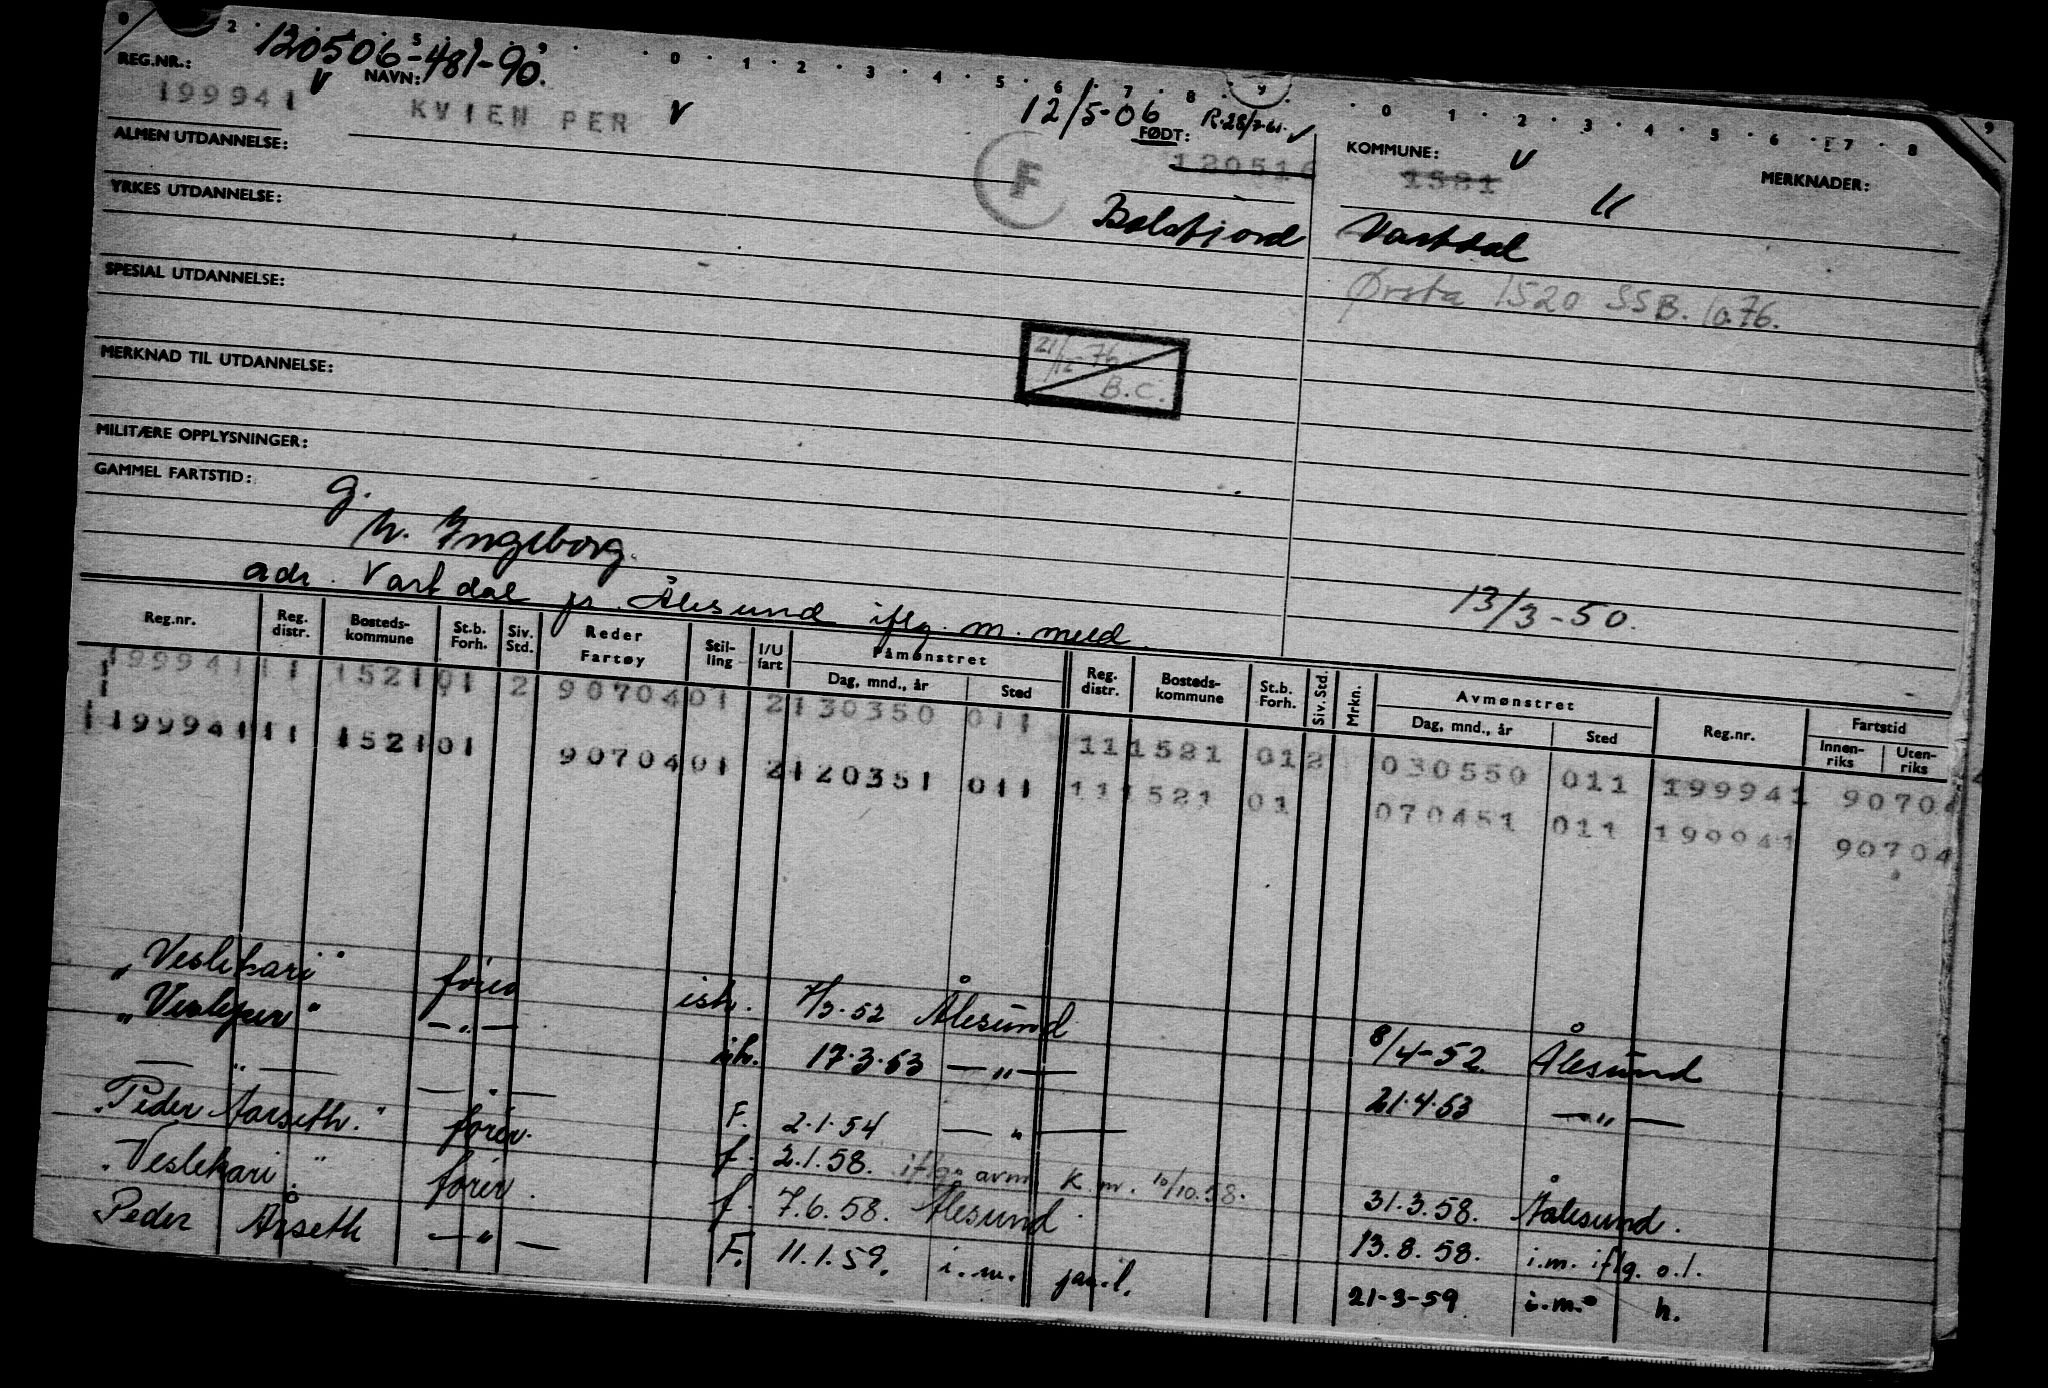 120506-481-90.
REG.NR.: V NAVN:
199941 KVIEN PER V
12/5-06 R.28/7-61. V
FØDT:
120516
KOMMUNE: V
1521
MERKNADER:
ALMEN UTDANNELSE:
F
Balsfjord
Vartdal
YRKES UTDANNELSE:
Ørsta 1520 SSB. 10.76.
SPESIAL UTDANNELSE:
21/12-76
B.C.
MERKNAD TIL UTDANNELSE:
MILITÆRE OPPLYSNINGER:
GAMMEL FARTSTID:
g.
h. Ingeborg.
adr. Vartdal pr. Ålesund iflg. m. meld.
13/3-50.
Reg.nr. Reg. distr. Bosteds-kommune St.b. Forh. Siv. Std. Reder Fartøy Stil-ling I/U fart Påmønstret Dag, mnd., år Sted Reg. distr. Bosteds-kommune St.b. Forh. Siv. Std. Mrkn. Avmønstret Dag, mnd., år Sted Reg.nr. Fartstid Innen-riks Uten-riks
199941 11 1521 01 2 90704 01 2 130350 011 11 1521 01 2 030550 011 199941 90704
199941 11 1521 01 90704 01 2 120351 011 11 1521 01 070451 011 199941 90704
"Veslekari" fører ish. 7/3-52 Ålesund 8/4-52. Ålesund
"Vesleper" —"— ish. 17.3.53 —"— 21.4.53 —"—
—"— —"— F. 2.1.54 —"—
"Peder Aarseth." fører. f. 2.1.58. iflg. avm. K.m. 10/10.58. 31.3.58. Aalesund.
"Veslekari." fører. f. 7.6.58. Ålesund. 13.8.58. i.m. iflg. o.l.
Peder Årseth —"— F. 11.1.59. i.m. 21-3-59 i.m. h.